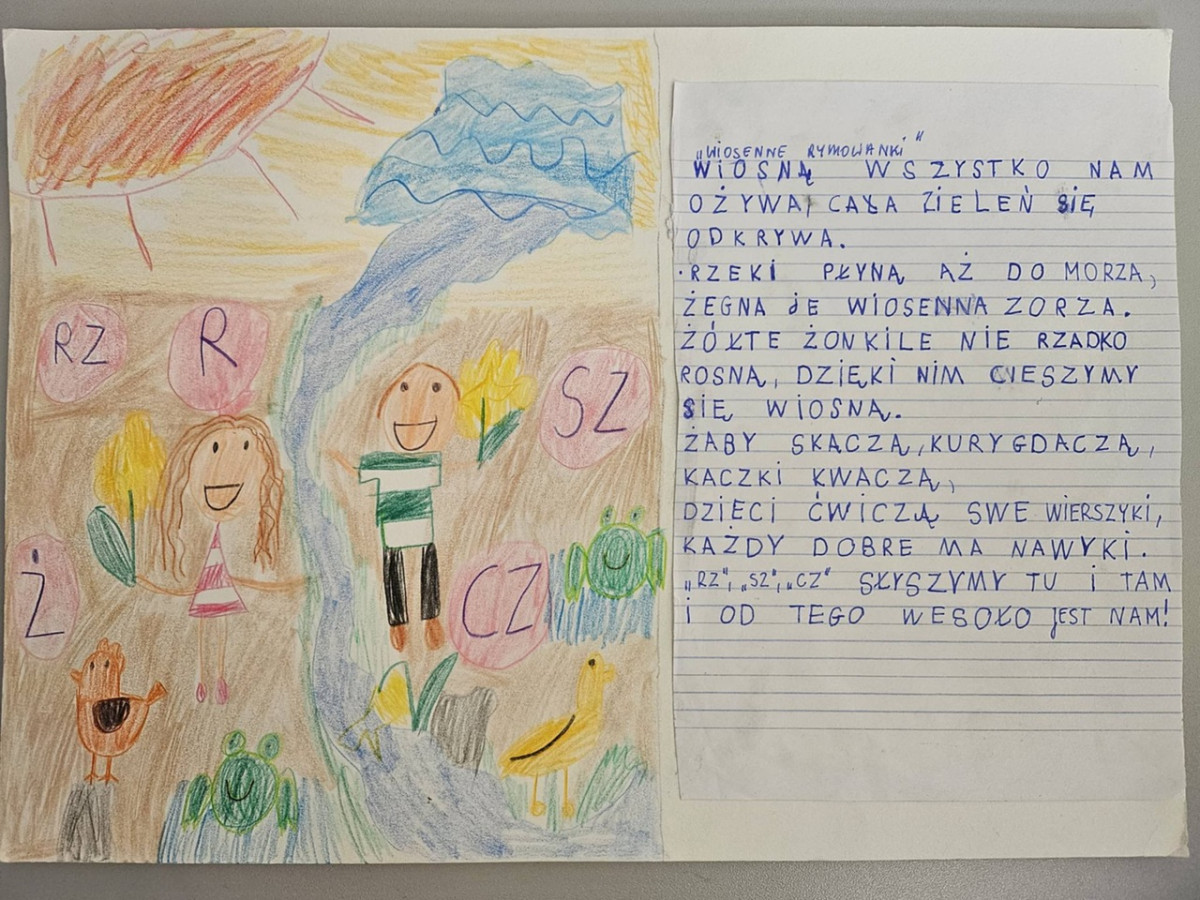 RZ
R
SZ
Ż
CZ
„WIOSENNE RYMOWANKI"
WIOSNĄ WSZYSTKO NAM
OŻYWA, CAŁA ZIELEŃ SIĘ
ODKRYWA.
·RZEKI PŁYNĄ AŻ DO MORZA,
ŻEGNA JE WIOSENNA ZORZA.
ŻÓŁTE ŻONKILE NIE RZADKO
ROSNĄ, DZIĘKI NIM CIESZYMY
SIĘ WIOSNĄ.
ŻABY SKACZĄ, KURY GDACZĄ,
KACZKI KWACZĄ,
DZIECI ĆWICZĄ SWE WIERSZYKI,
KAŻDY DOBRE MA NAWYKI.
„RZ", „SZ", „CZ" SŁYSZYMY TU I TAM
I OD TEGO WESOŁO JEST NAM!